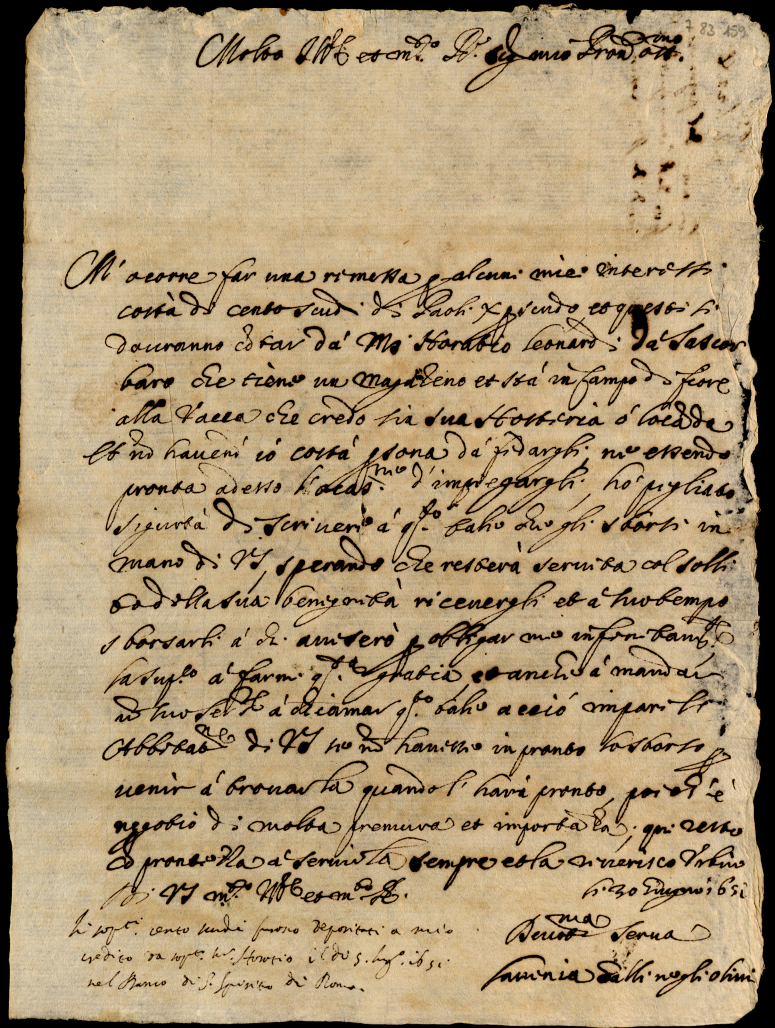 7 83 159
Molto Ill.e et m.to R.do sig. mio Pron. oss.mo
M'ocorre far una rimessa p alcuni miei interessi
costà di cento scudi di Paoli X p scudo, et questi li
dovranno cōtar dà Ms Horatio Leonardi dà Sascor
baro che tiene un magazeno et stá in Campo di fiore
alla Vacca che credo sia sua Hosteria ó locāda
Et nō havend' ió costá psona dá fidargli, ne essendo
pronta adesso l'ocas.ne d'impiegargli, hó pigliato
sigurtà di scrivere á q.sto tale che gli sborsi in
mano di VS, sperando che resterà servita col solli
to della sua benignità ricevergli et á suo tempo
sborsarli á chi aviserò p obligar me infinitam.te
la sup.co á farmi q.sta gratia et anche á mandar
un suo ser.re á chiamar q.sto tale acció impari l'
Abbitat.ne di VS se nō havesse in pronto lo sborso
venir á trovarla quando l' harà pronto, poi ch' é
negotio di molta premura et importāza, qui resto
cō prontezza á servirla sempre et la riverisco Urbino
Di VS m.to Ill.e et m.to R.
li 30 Giugno 1651
Devot.ma Serva
Lavinia
li sop.ti cento scudi furono depositati a mio
credito da sop.to sr. Horatio il dì 5. lug.o 1651
nel Banco di S. Spirito di Roma.